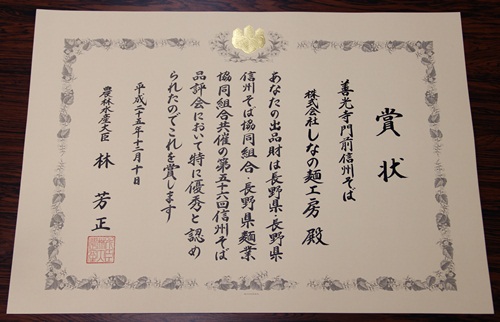 賞状
善光寺門前信州そば
株式会社しなの麺工房 殿
あなたの出品財は長野県・長野県
信州そば協同組合・長野県麺業
協同組合共催の第五十六回信州そば
品評会において特に優秀と認め
られたのでこれを賞します
平成二十五年十二月十日
農林水産大臣 林 芳正